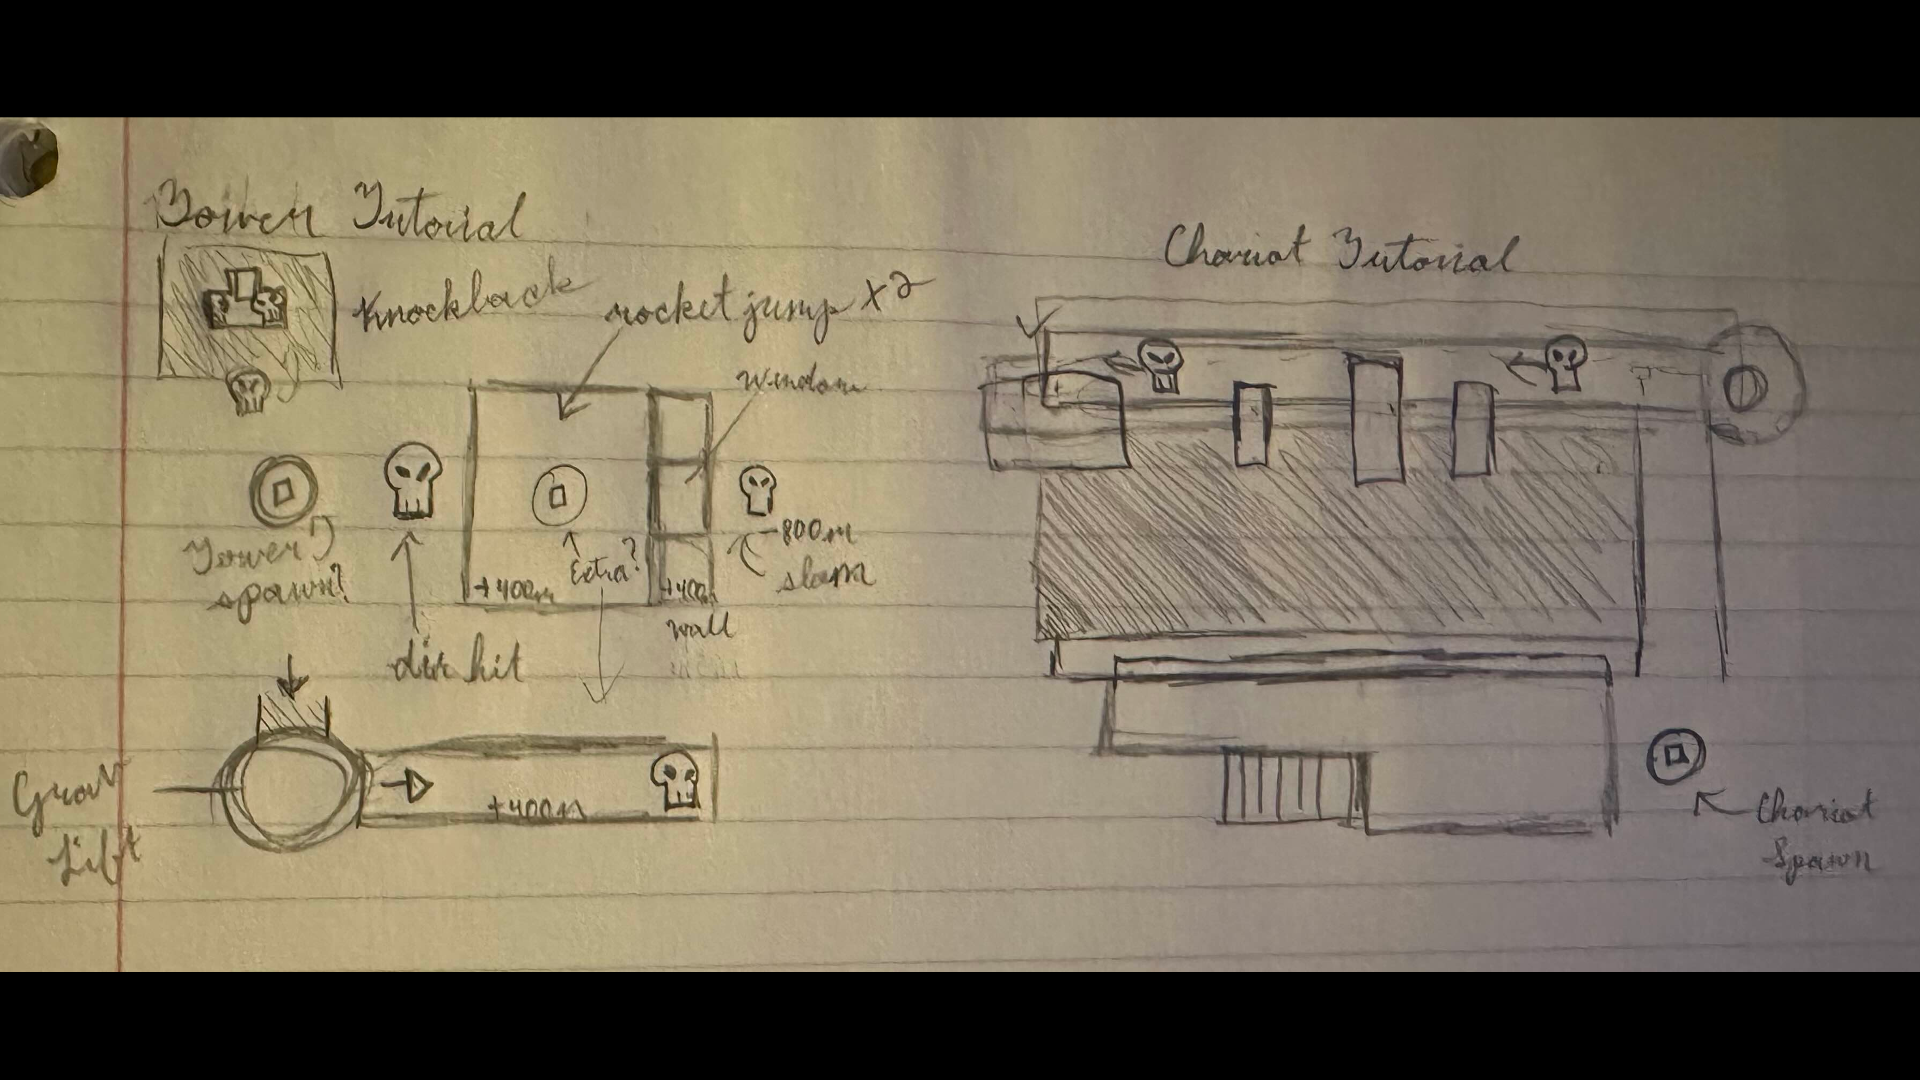 Tower Tutorial
Knockback
rocket jump x2
window
Tower
spawn?
dir hit
+400m
Extra?
+400m
wall
-800m
slam
Grav
Lift
+400m
Chariot Tutorial
Chariot
Spawn